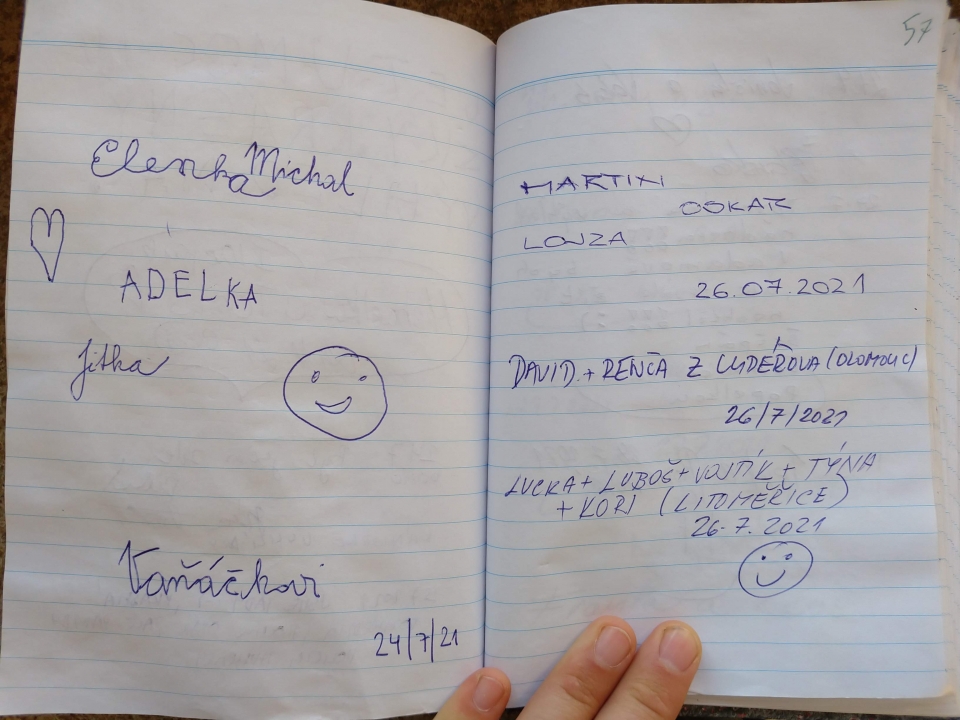 Elenka Michal
ADELKA
Jitka
Vaňáčkovi
24/7/21
57
MARTIN
OSKAR
LOJZA
26.07.2021
DAVID + RENČA Z LUDÉŘOVA (OLOMOUC)
26/7/2021
LUCKA + LUBOŠ + VOJTÍK + TÝNA
+ KORI (LITOMĚŘICE)
26.7.2021